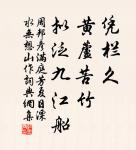 凭栏久
黄蘆苦竹
拟泛九江船
周邦彦满庭芳夏日溧
水无想山作词典网集